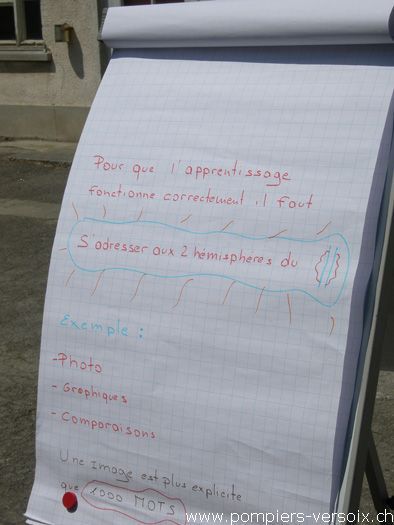 Pour que l'apprentissage
fonctionne correctement il faut
S'adresser aux 2 hémisphères du
Exemple :
- Photo
- Graphiques
- Comparaisons
Une image est plus explicite
que 1000 MOTS
www.pompiers-versoix.ch